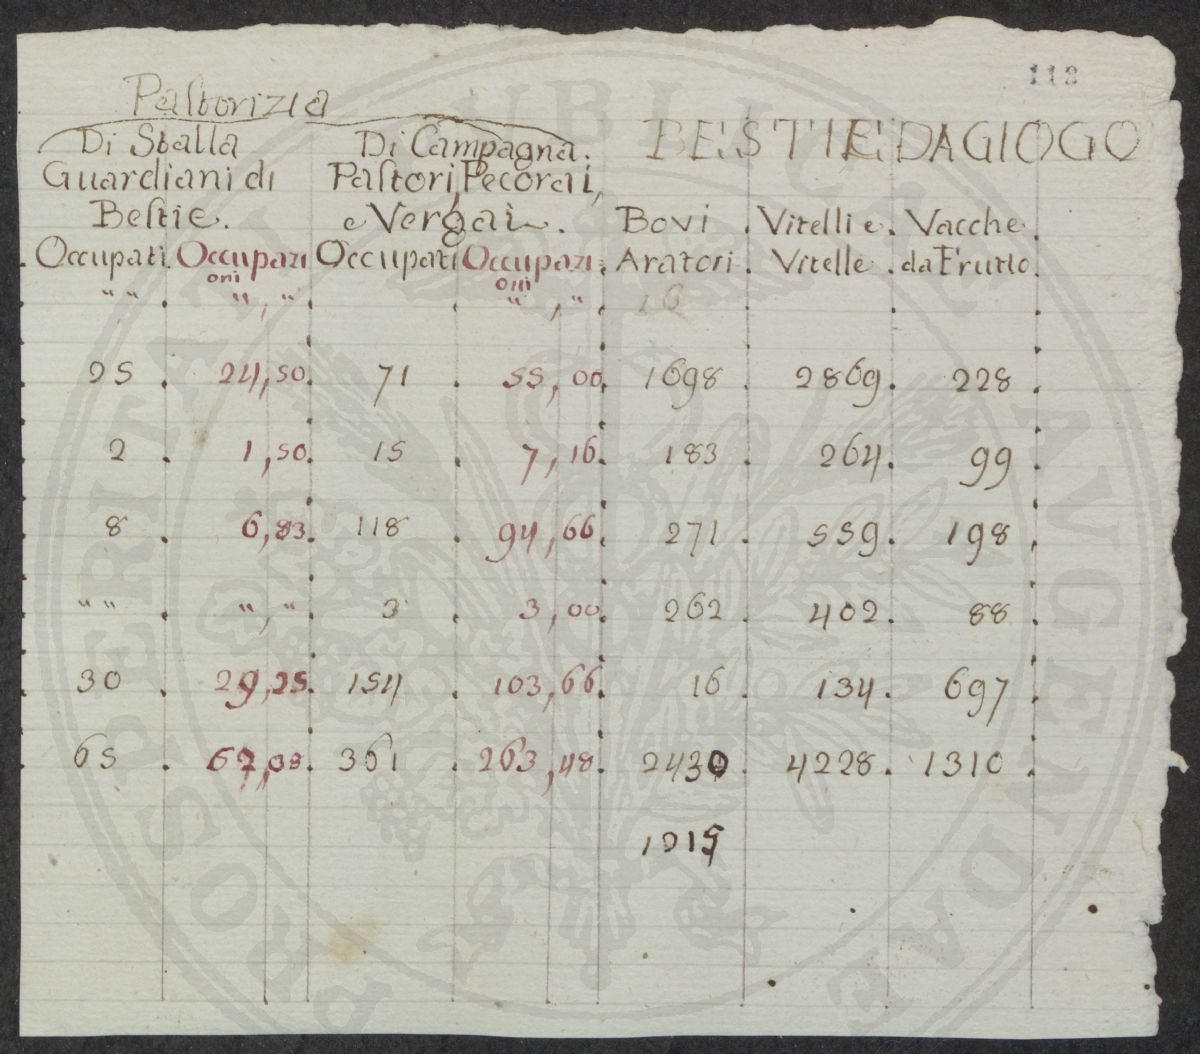 118
Pastorizia
Di Stalla Di Campagna. BESTIE DAGIOGO
Guardiani di Pastori, Pecorai,
Bestie. e Vergai. Bovi Vitelli e Vacche
Occupati Occupazioni Occupati Occupazioni Aratori Vitelle da Frutto
" " " , " " , " 16
25 24,50 71 55,00 1698 2869 228
2 1,50 15 7,16 183 264 99
8 6,83 118 94,66 271 559 198
" " " , " 3 3,00 262 402 88
30 29,25 154 103,66 16 134 697
65 62,08 361 263,48 2430 4228 1310
1215